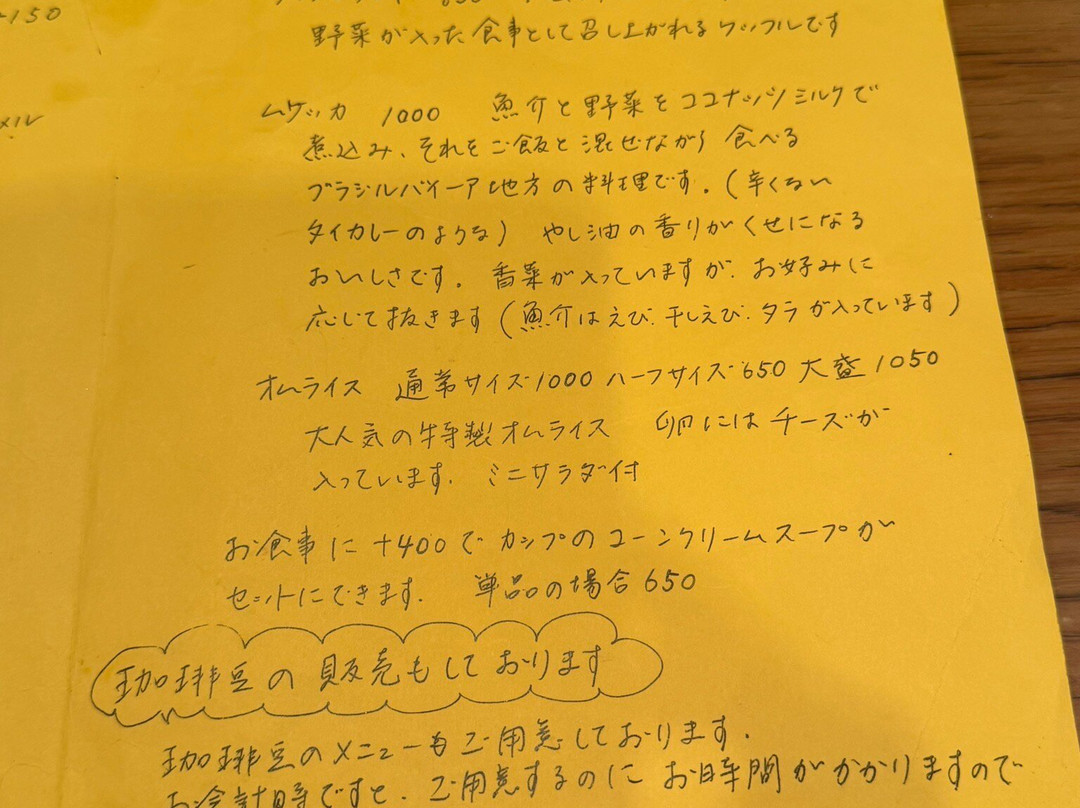 +150
650
野菜が入った食事として召し上がれるワッフルです
ムケッカ 1000 魚介と野菜をココナッツミルクで
煮込み、それをご飯と混ぜながら食べる
ブラジルバイーア地方の料理です。(辛くない
タイカレーのような) やし油の香りがくせになる
おいしさです。香菜が入っていますが、お好みに
応じて抜きます(魚介はえび、干しえび、タラが入っています)
オムライス 通常サイズ1000 ハーフサイズ650 大盛1050
大人気の特製オムライス 卵にはチーズが
入っています。ミニサラダ付
お食事に+400でカップのコーンクリームスープが
セットにできます。 単品の場合650
珈琲豆の販売もしております
珈琲豆のメニューもご用意しております。
お会計時ですと、ご用意するのにお時間がかかりますので